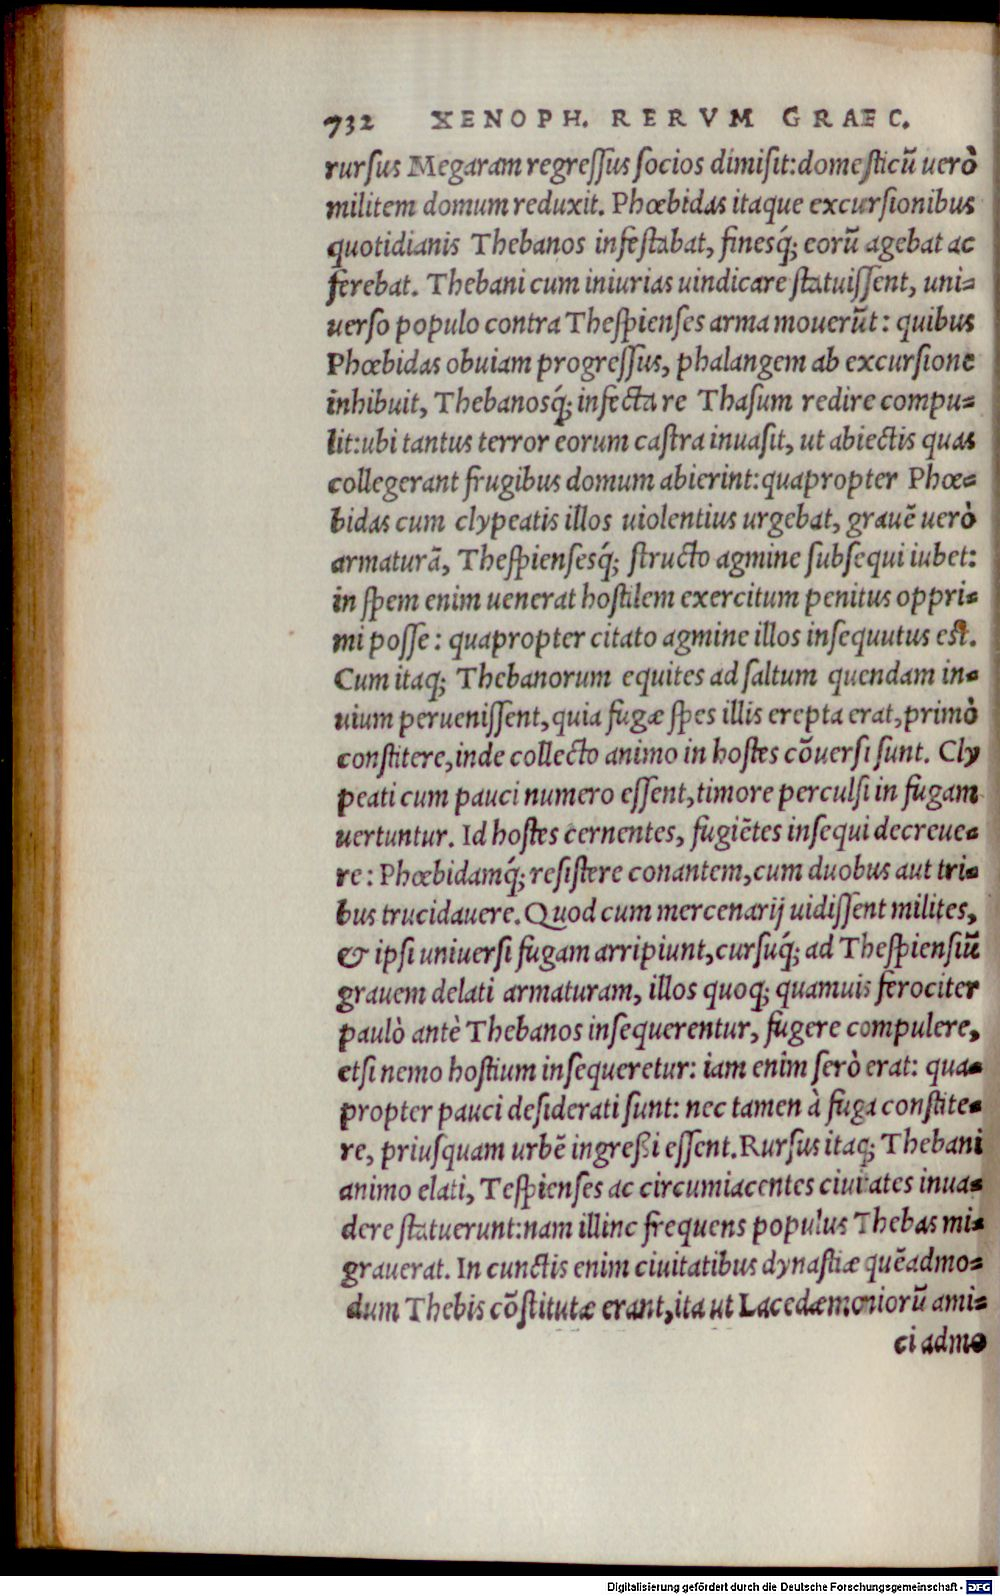 732 XENOPH. RERVM GRAEC.
rursus Megaram regressus socios dimisit: domesticũ uerò
militem domum reduxit. Phœbidas itaque excursionibus
quotidianis Thebanos infestabat, finesq́; eorũ agebat ac
ferebat. Thebani cum iniurias uindicare statuissent, uni=
uerso populo contra Thespienses arma mouerũt: quibus
Phœbidas obuiam progressus, phalangem ab excursione
inhibuit, Thebanosq́; infecta re Thasum redire compu=
lit: ubi tantus terror eorum castra inuasit, ut abiectis quas
collegerant frugibus domum abierint: quapropter Phœ=
bidas cum clypeatis illos uiolentius urgebat, grauẽ uerò
armaturã, Thespiensesq́; structo agmine subsequi iubet:
in spem enim uenerat hostilem exercitum penitus oppri=
mi posse: quapropter citato agmine illos insequutus est.
Cum itaq; Thebanorum equites ad saltum quendam in=
uium peruenissent, quia fugæ spes illis erepta erat, primò
constitere, inde collecto animo in hostes cõuersi sunt. Cly
peati cum pauci numero essent, timore perculsi in fugam
uertuntur. Id hostes cernentes, fugiẽtes insequi decreue=
re: Phœbidamq́; resistere conantem, cum duobus aut tri=
bus trucidauere. Quod cum mercenarij uidissent milites,
& ipsi uniuersi fugam arripiunt, cursuq́; ad Thespiensiũ
grauem delati armaturam, illos quoq; quamuis ferociter
paulò antè Thebanos insequerentur, fugere compulere,
etsi nemo hostium insequeretur: iam enim serò erat: qua=
propter pauci desiderati sunt: nec tamen à fuga constite=
re, priusquam urbẽ ingreßi essent. Rursus itaq; Thebani
animo elati, Tespienses ac circumiacentes ciuitates inua=
dere statuerunt: nam illinc frequens populus Thebas mi=
grauerat. In cunctis enim ciuitatibus dynastiæ quẽadmo=
dum Thebis cõstitutæ erant, ita ut Lacedæmoniorũ ami=
ci admo
Digitalisierung gefördert durch die Deutsche Forschungsgemeinschaft - DFG